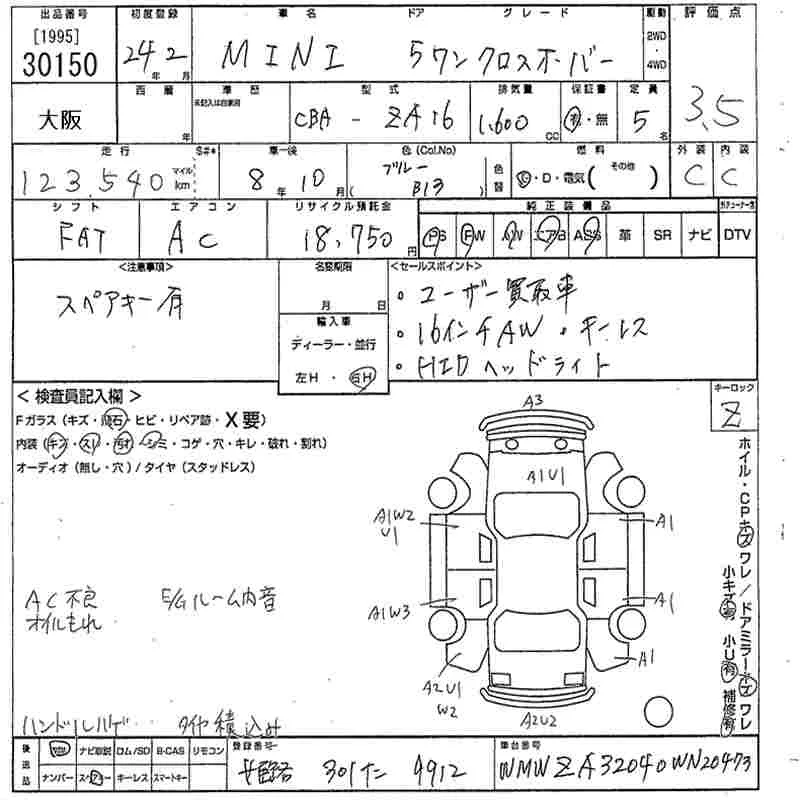 出品番号 初度登録 車名 ドア グレード 駆動 評価点
[1995]
30150 24年2月 MINI 5ワン クロスオーバー 2WD・4WD
西暦 車歴 型式 排気量 保証書 定員
大阪 年 未記入は自家用 CBA - ZA16 1,600cc 有・無 5名 3.5
走行 S#* 車検 色(Col.No) 燃料 外装 内装
123,540 マイル km 8年10月 (ブルー B13) 色替 G・D・電気( その他 ) C C
シフト エアコン リサイクル預託金 純正装備品
FAT AC 18,750円 PS PW AW エアB ABS 革 SR ナビ DTV
<注意事項> 名変期限 <セールスポイント>
スペアキー有 月 日 ・ユーザー買取車
輸入車 ・16インチAW ・キーレス
ディーラー・並行 ・HIDヘッドライト
左H・右H
<検査員記入欄> キーロック
Fガラス(キズ・飛石・ヒビ・リペア跡・X要) Z
内装(キズ・スレ・汚れ・シミ・コゲ・穴・キレ・破れ・割れ)
オーディオ(無し・穴)/タイヤ(スタッドレス)
ホイル・CPキズ ワレ/ドアミラーキズ ワレ
小キズ有 小U有 補修有
A3
A1U1
A1W2
U1
A1
A1W3
A1
A2U1
W2
A1
A2U2
AC不良 E/Gルーム内音
オイルもれ
ハンドルハゲ タイヤ積込み
後送品 ナビ取説 ロム/SD B-CAS リモコン 登録番号 車台番号
ナンバー スペアキー キーレス スマートキー 姫路 301 4912 WMWZA32040WN20473